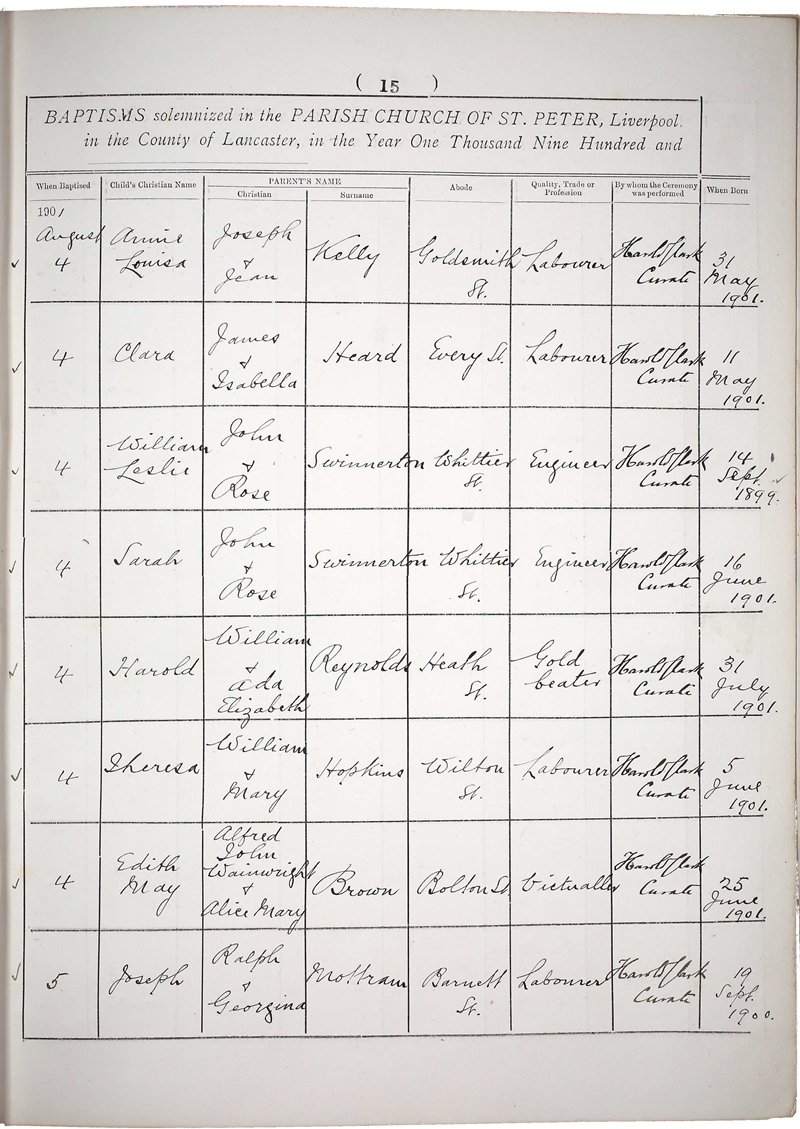 ( 15 )
BAPTISMS solemnized in the PARISH CHURCH OF ST. PETER, Liverpool.
in the County of Lancaster, in the Year One Thousand Nine Hundred and
When Baptised Child's Christian Name PARENT'S NAME Christian Surname Abode Quality, Trade or Profession By whom the Ceremony was performed When Born
1901
August 4 Annie Louisa Joseph & Jean Kelly Goldsmith St. Labourer Harold Clark Curate 31 May 1901.
4 Clara James & Isabella Heard Every St. Labourer Harold Clark Curate 11 May 1901.
4 William Leslie John & Rose Swinnerton Whittier St. Engineer Harold Clark Curate 14 Sept. 1899.
4 Sarah John & Rose Swinnerton Whittier St. Engineer Harold Clark Curate 16 June 1901.
4 Harold William & Ada Elizabeth Reynolds Heath St. Gold beater Harold Clark Curate 31 July 1901.
4 Theresa William & Mary Hopkins Wilton St. Labourer Harold Clark Curate 5 June 1901.
4 Edith May Alfred John Wainwright & Alice Mary Brown Bolton St. Victualler Harold Clark Curate 25 June 1901.
5 Joseph Ralph & Georgina Mottram Barnett St. Labourer Harold Clark Curate 19 Sept. 1900.